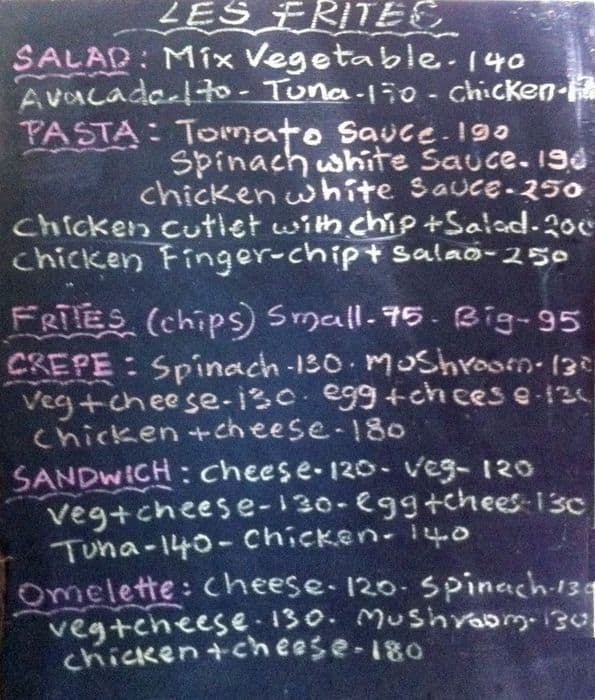 LES FRITES
SALAD: Mix Vegetable - 140
Avacado - 170 - Tuna - 170 - chicken -
PASTA: Tomato Sauce - 190
Spinach white Sauce - 190
chicken white Sauce - 250
Chicken cutlet with chip + Salad - 200
Chicken Finger-chip + Salad - 250
FRITES (chips) Small - 75 - Big - 95
CREPE: Spinach - 130 - MuShroom - 130
veg + cheese - 130 - egg + cheese - 130
chicken + cheese - 180
SANDWICH: cheese - 120 - veg - 120
veg + cheese - 130 - egg + chees - 130
Tuna - 140 - Chicken - 140
Omelette: cheese - 120 - Spinach - 130
veg + cheese - 130 - MuShroom - 130
chicken + cheese - 180